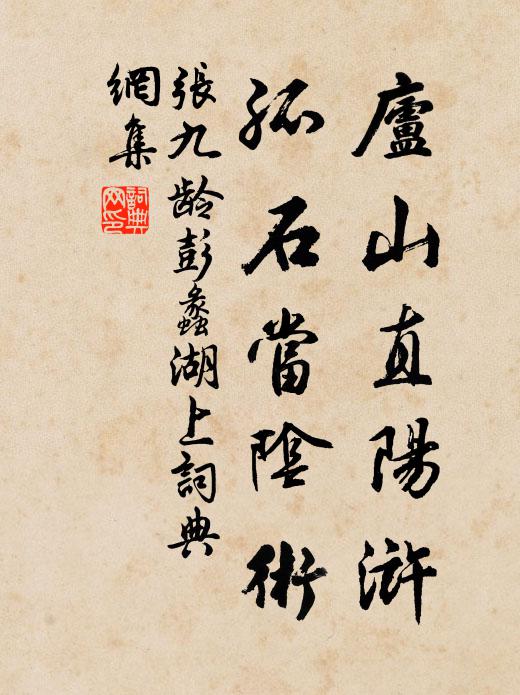 廬山直陽滸
孤石當陰術
張九龄彭蠡湖上詞典
網集
詞典
網印